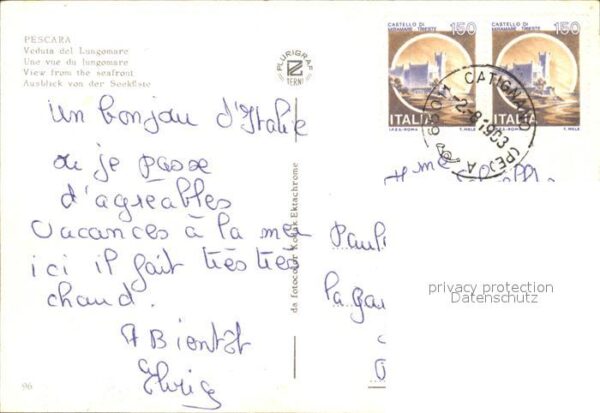 PESCARA
Veduta del Lungomare
Une vue du lungomare
View from the seafront
Ausblick von der Seeküste
PLURIGRAF
TERNI
CASTELLO DI
MIRAMARE TRIESTE
150
ITALIA
I.P.Z.S.-ROMA
T. MELE
CASTELLO DI
MIRAMARE TRIESTE
150
ITALIA
I.P.Z.S.-ROMA
T. MELE
CATIGNANO (PE)
65011
-2-8 1983
un bonjour d'Italie
où je passe
d'agréables
vacances à la mer
ici il fait très très
chaud.
A Bientôt
da fotocolor Kodak Ektachrome
Mme
Pauli
la Gau
privacy protection
Datenschutz
96